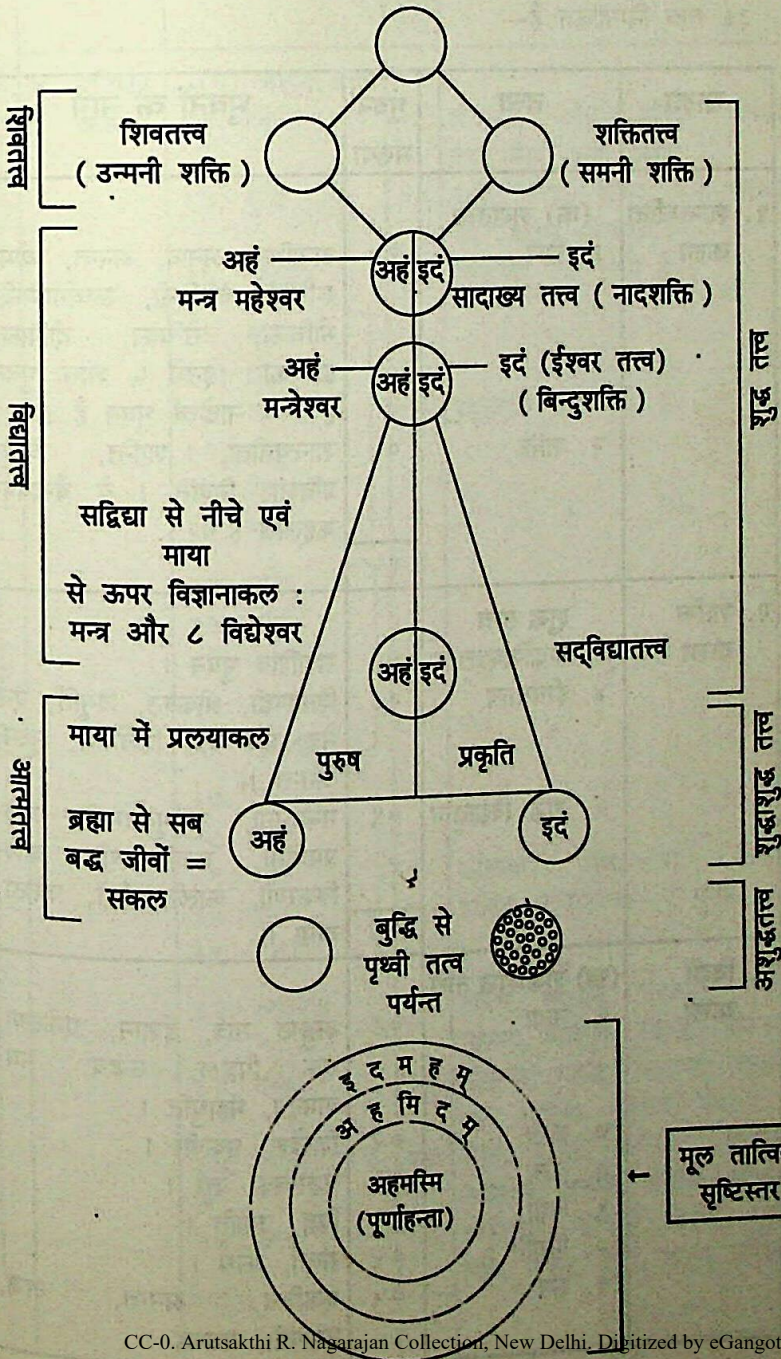 शिवतत्त्व
शिवतत्त्व
( उन्मनी शक्ति )
शक्तितत्त्व
( समनी शक्ति )
अहं
मन्त्र महेश्वर
अहं इदं
इदं
सादाख्य तत्त्व ( नादशक्ति )
शुद्ध तत्त्व
अहं
मन्त्रेश्वर
अहं इदं
इदं (ईश्वर तत्त्व)
( बिन्दुशक्ति )
विद्यातत्त्व
सद्विद्या से नीचे एवं
माया
से ऊपर विज्ञानाकल :
मन्त्र और ८ विद्येश्वर
अहं इदं
सद्‌विद्यातत्त्व
आत्मतत्त्व
माया में प्रलयाकल
पुरुष
प्रकृति
शुद्धाशुद्ध तत्त्व
ब्रह्मा से सब
बद्ध जीवों =
सकल
अहं
इदं
बुद्धि से
पृथ्वी तत्व
पर्यन्त
अशुद्धतत्त्व
इ द म ह म्
अ ह मि द म्
अहमस्मि
(पूर्णाहन्ता)
मूल तात्वि
सृष्टिस्तर
CC-0. Arutsakthi R. Nagarajan Collection, New Delhi. Digitized by eGangot